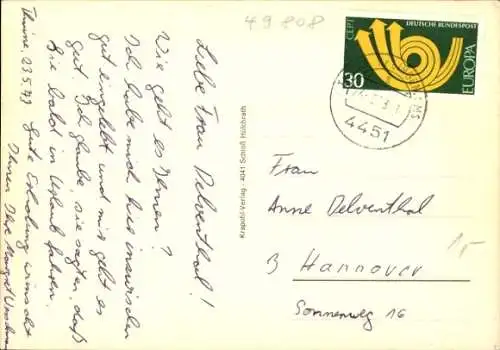 49808
Liebe Frau Delventhal!
Wie geht es Ihnen?
Ich habe mich hier inzwischen
gut eingelebt und mir geht es
gut. Ich glaube sie sagten, daß
Sie bald in Urlaub fahren.
Gute Erholung wünscht
Ihnen Ihre Margret
Thuine, 23.5.73
Krapohl-Verlag · 4041 Schloß Hülchrath
CEPT
DEUTSCHE BUNDESPOST
EUROPA
30
4451
Frau
Anne Delventhal
3 Hannover
Sonnenweg 16
1,-